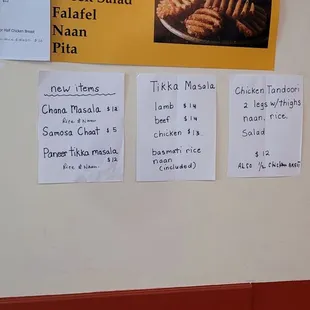 Salad
Falafel
Naan
Pita
new items
Chana Masala $12
Rice & Naan
Samosa Chaat $5
Paneer tikka masala
$12
Rice & Naan
Tikka Masala
lamb $14
beef $14
chicken $13
basmati rice
naan
(included)
Chicken Tandoori
2 legs w/thighs
naan, rice.
Salad
$12
ALSO 1/2 Chicken